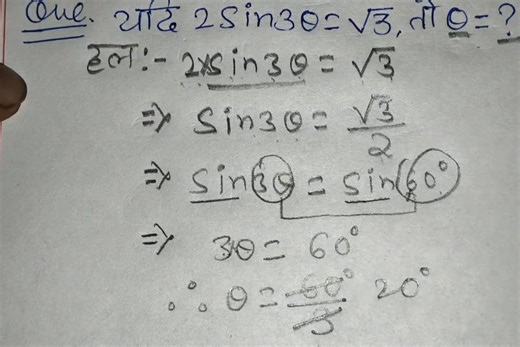 Que. यदि 2Sin3θ = √3, तो θ = ?
हल :- 2×sin3θ = √3
⇒ Sin3θ = √3/2
⇒ Sin3θ = Sin60°
⇒ 3θ = 60°
∴ θ = 60°/3 20°